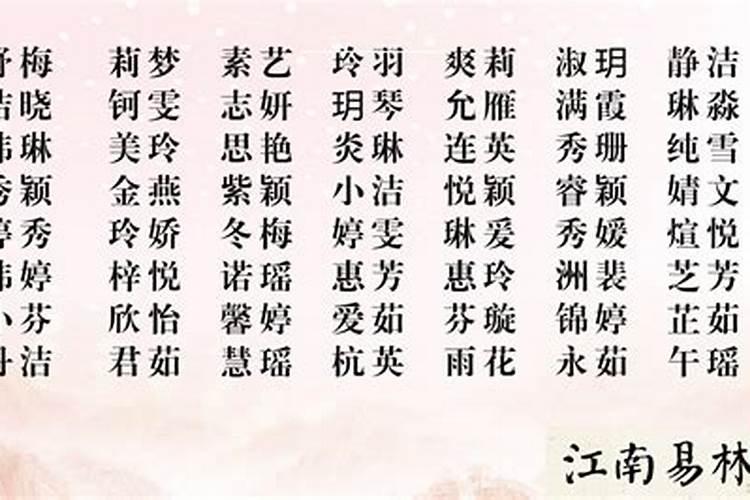 梅 莉梦 素艺 玲羽 爽莉 淑玥 静洁
晓 钶雯 志妍 玥琴 允雁 满霞 琳淼
琳 美玲 思艳 炎琳 连英 秀珊 纯雪
颖 金燕 紫颖 小洁 悦颖 睿颖 婧文
秀 玲娇 冬梅 婷雯 琳爰 秀媛 煊悦
婷 梓悦 诺瑶 惠芳 惠玲 洲裴 芝芳
芬 欣怡 馨婷 爱茹 芬璇 锦婷 芷茹
洁 君茹 慧瑶 杭英 雨花 永茹 午瑶
江南易林